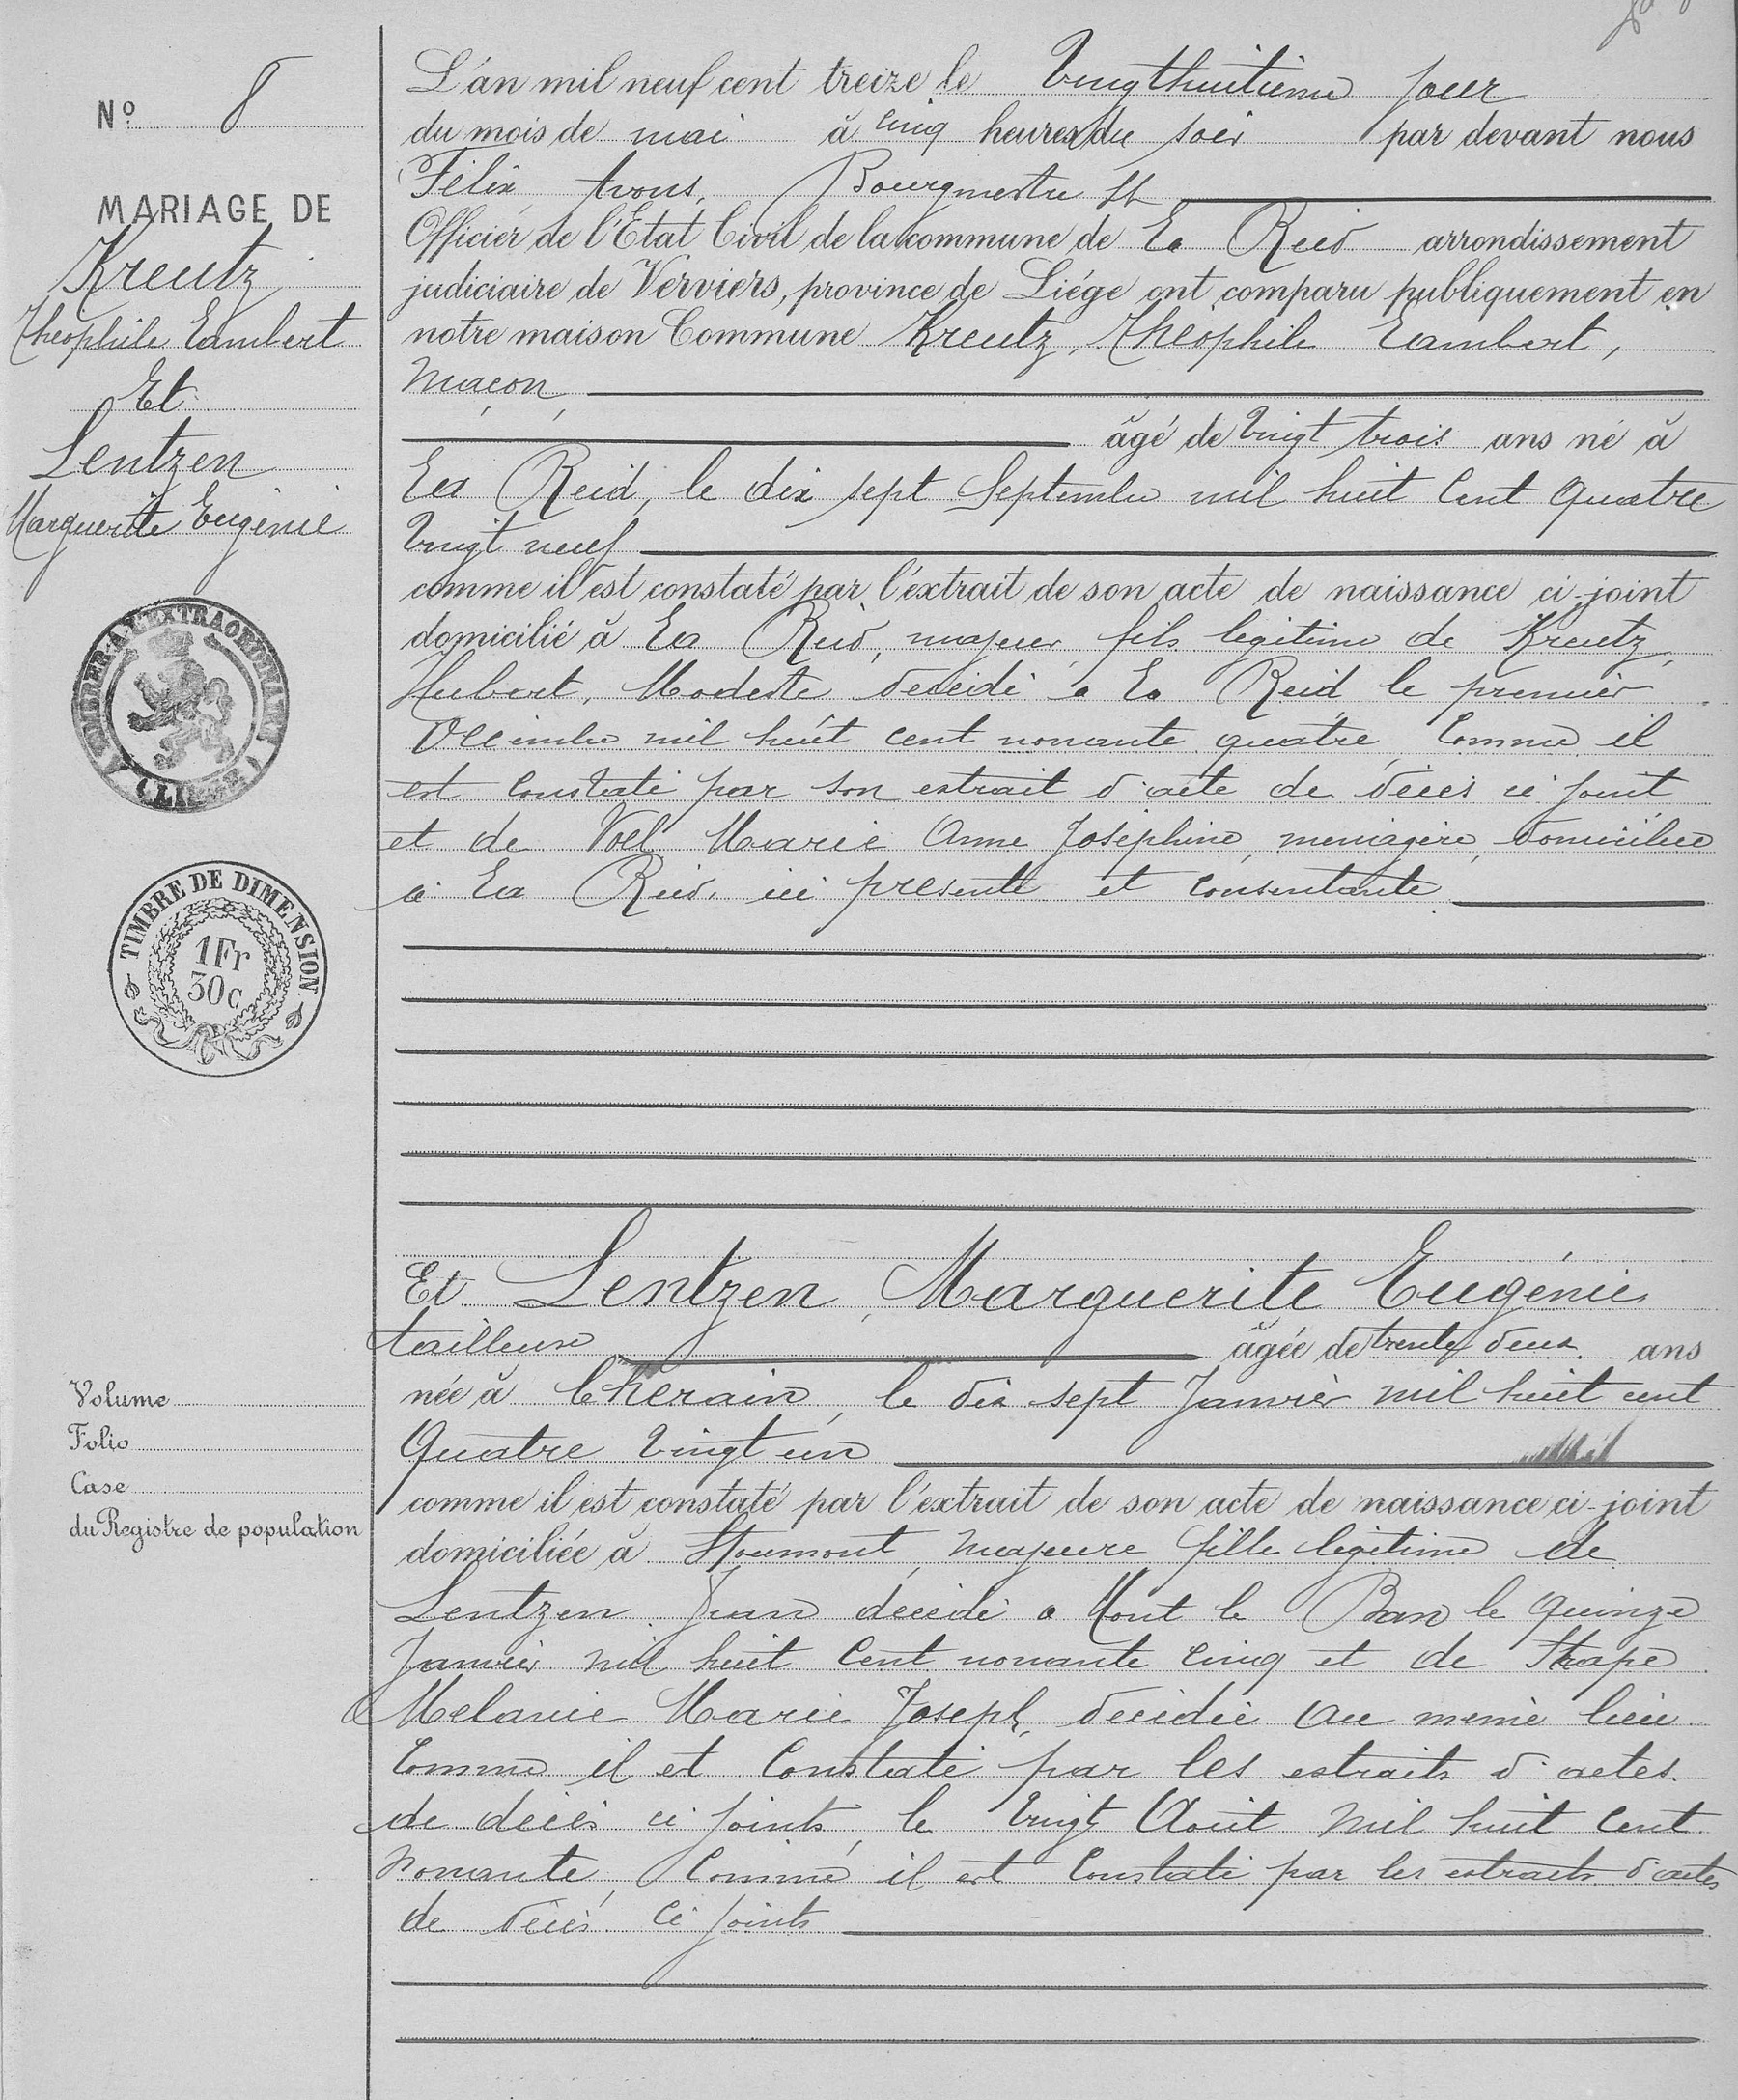 Nº 8
MARIAGE DE
Kreutz
Théophile Lambert
Et
Lentzen
Marguerite Eugénie
TIMBRER A L'EXTRAORDINAIRE
LIEGE
TIMBRE DE DIMENSION
1Fr
30c
Volume
Folio
Case
du Registre de population
L'an mil neuf cent treize le vingthuitième jour
du mois de mai à cinq heures du soir par devant nous
Félix Bourgmestre
Officier de l'Etat Civil de la commune de La Reid arrondissement
judiciaire de Verviers, province de Liége ont comparu publiquement en
notre maison Commune Kreutz, Théophile Lambert,
maçon,
âgé de vingt trois ans né à
La Reid, le dix sept Septembre mil huit Cent quatre
vingt neuf
comme il est constaté par l'extrait de son acte de naissance ci-joint
domicilié à La Reid, majeur, fils légitime de Kreutz,
Hubert, Modeste décédé a La Reid, le premier
Décembre mil huit cent nonante quatre, Comme il
est Constaté par son extrait d'acte de décès ci joint
et de Noël Marie Anne Joséphine, ménagère, domiciliée
à La Reid, ici présente et consentante
Et Lentzen, Marguerite Eugénie
tailleuse âgée de trente deux ans
née à Cherain, le dix sept Janvier mil huit cent
Quatre vingt un
comme il est constaté par l'extrait de son acte de naissance ci-joint
domiciliée à Stoumont, majeure fille légitime de
Lentzen Jean décédé a Mont le Ban le quinze
Janvier mil huit Cent nonante cinq et de
Mélanie Marie Joseph, décédée au même lieu
Comme il et Constaté par les extraits d'actes
de décès ci joints, le vingt Août mil huit Cent
nonante, Comme il est Constaté par les extraits d'actes
de décès ci joints